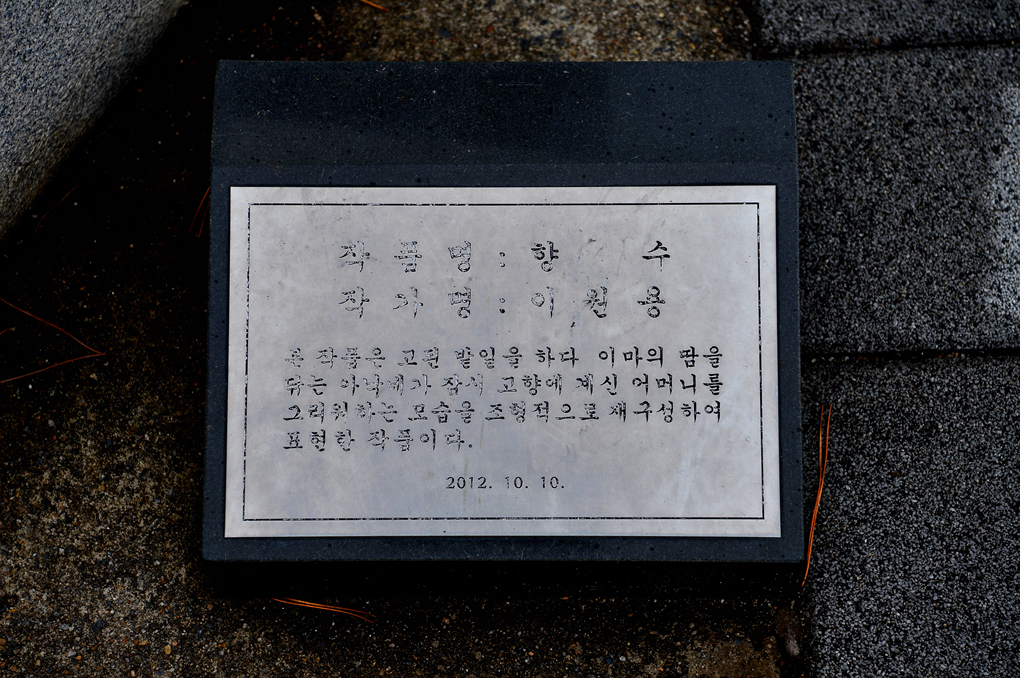 작품명 : 향 수
작가명 : 이원용
본 작품은 고된 밭일을 하다 이마의 땀을
닦는 아낙네가 잠시 고향에 계신 어머니를
그리워하는 모습을 조형적으로 재구성하여
표현한 작품이다.
2012. 10. 10.